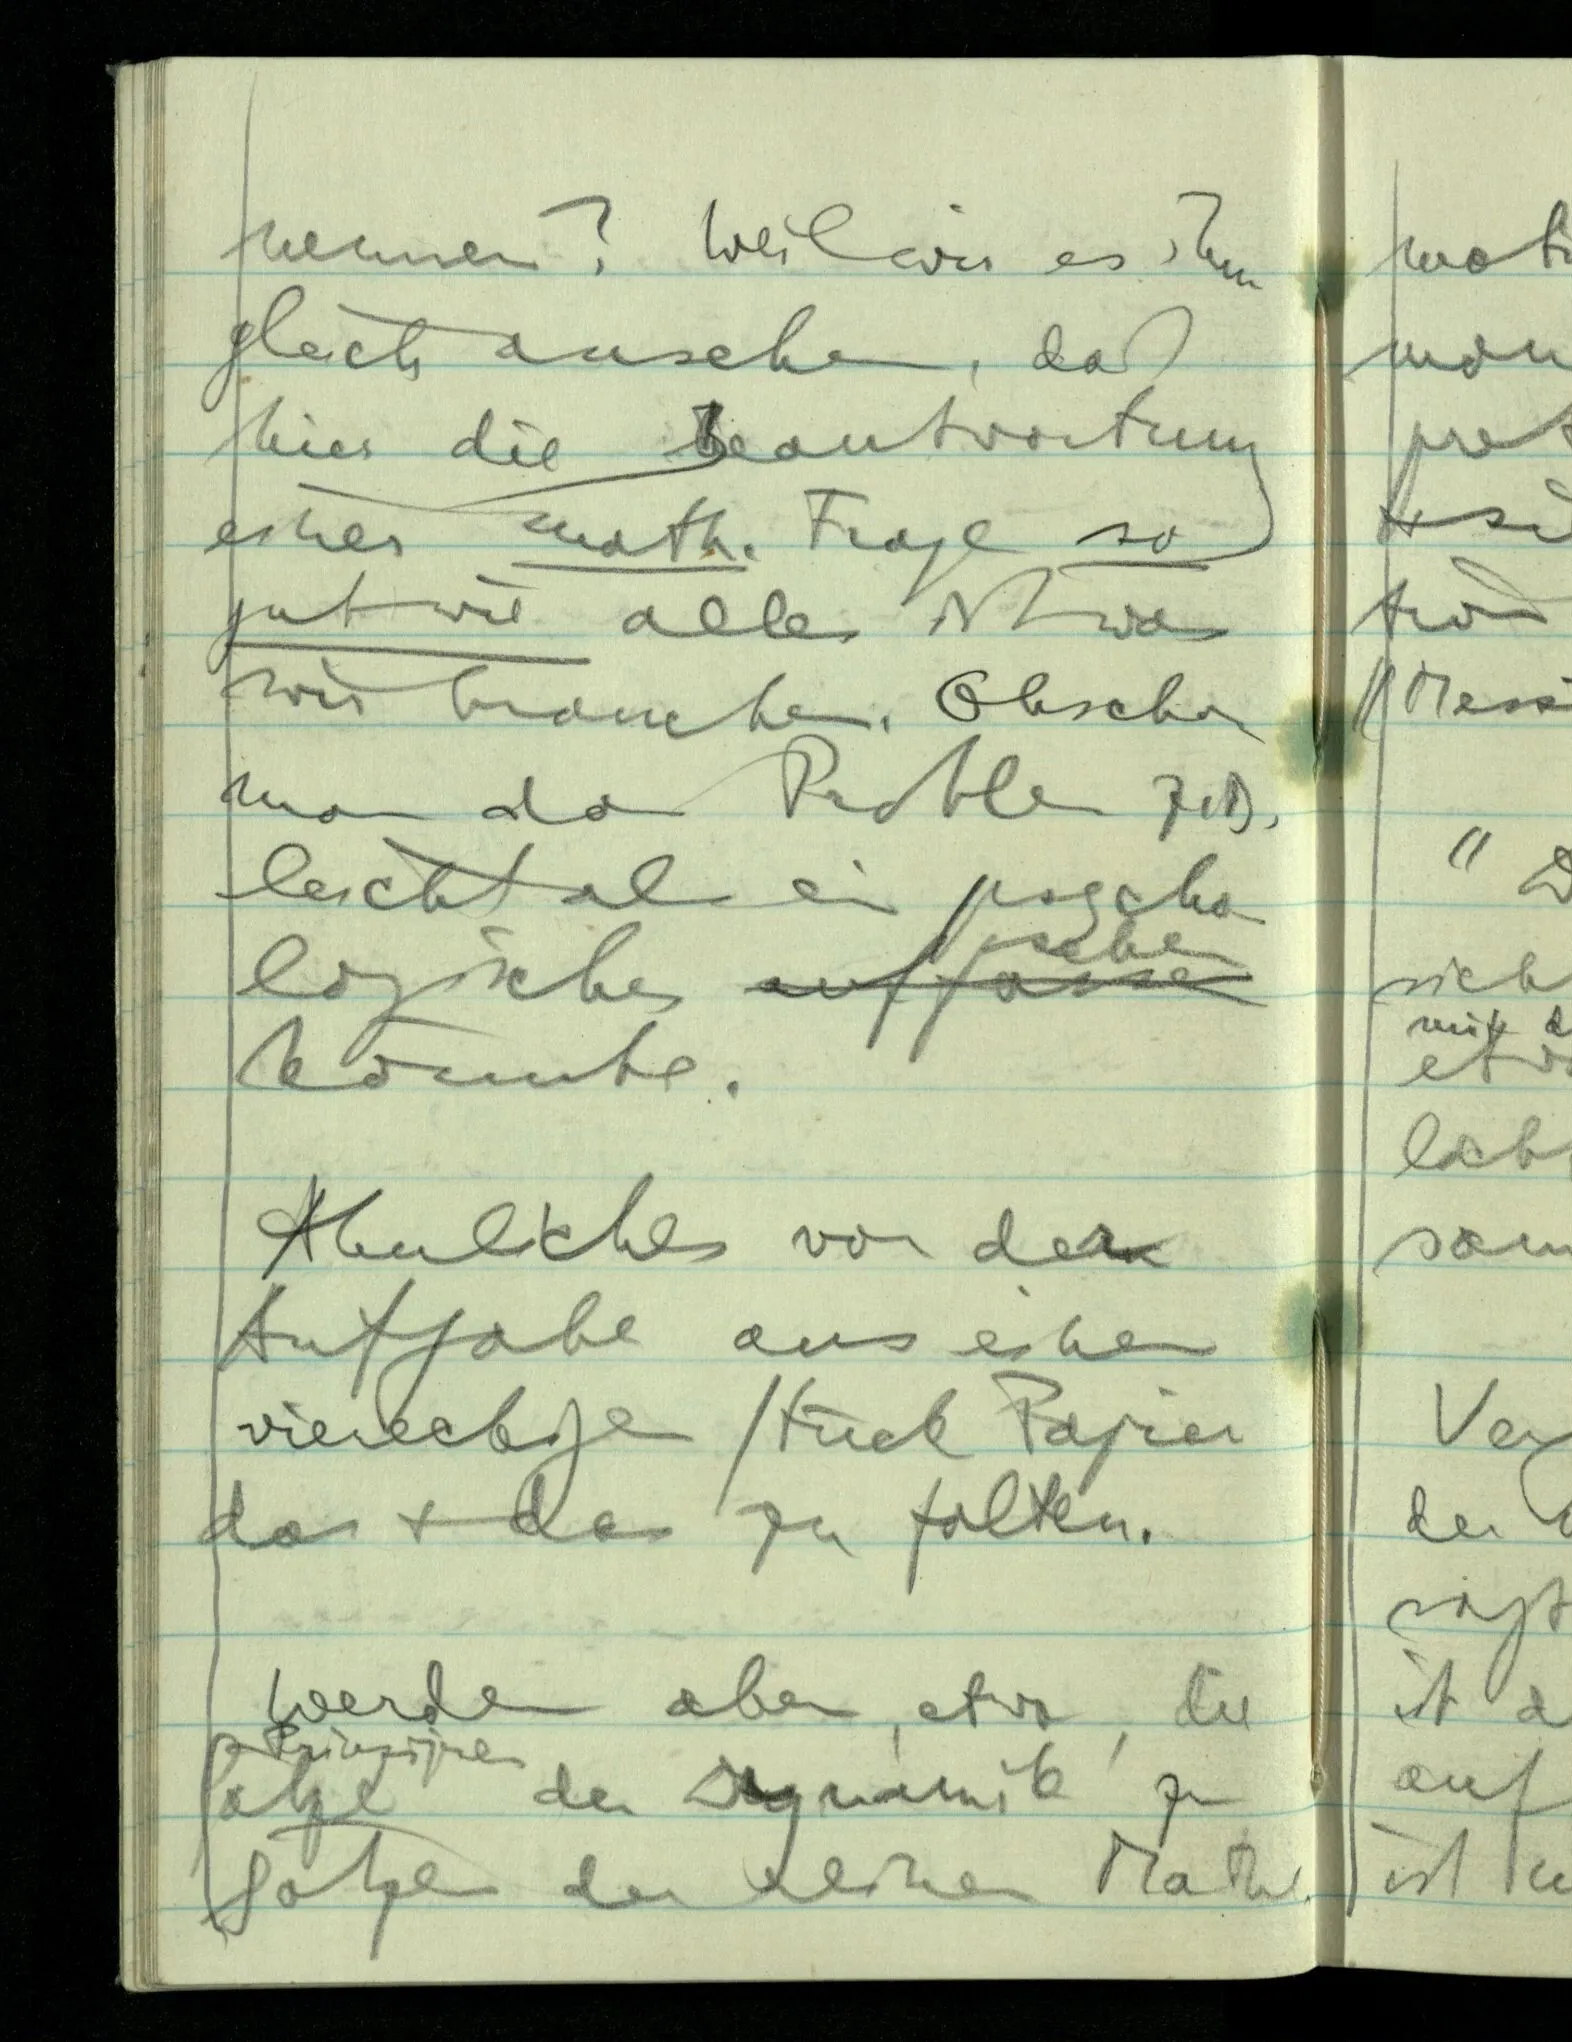 nennen? Weil wir es ihm
gleich ansehen, daß
hier die Beantwortung
einer math. Frage so
gut wie alles ist was
wir brauchen. Obschon
man das Problem z.B.
leicht als ein psycho
logisches auffassen sehen
könnte.
Ähnliches von der
Aufgabe aus einem
viereckigen Stück Papier
das + das zu falten.
Werden aber, etwa, die
Prinzipien
Sätze der Dynamik zu
Sätzen der reinen Math.
mat
man
pret
+ si
tion
Messi
" D
sich
mit d
etwa
lich
sam
Ver
der
sagt
it a
auf
ist